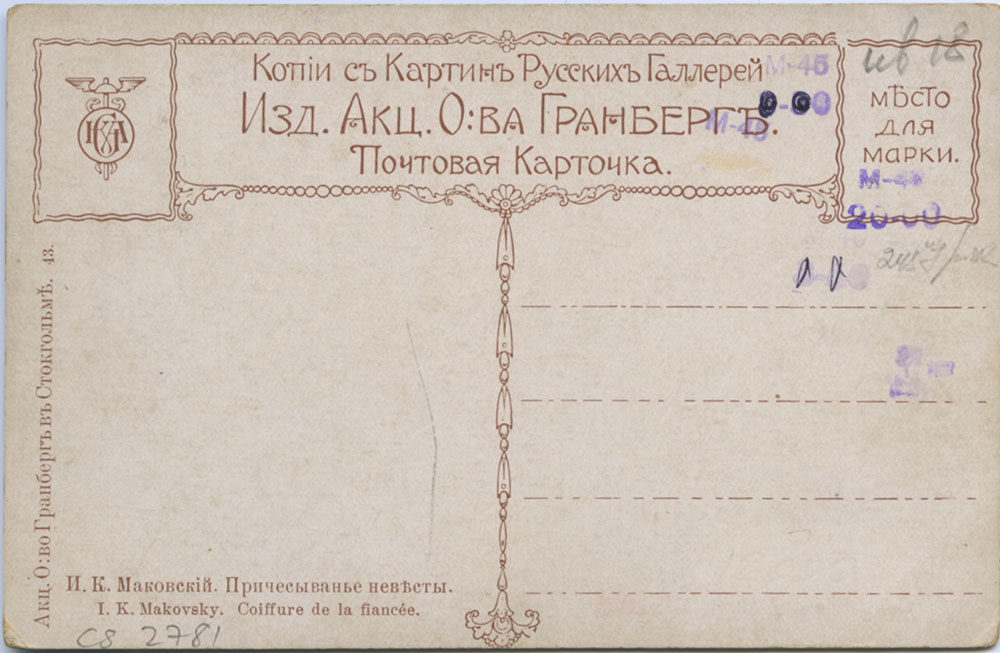 Копіи съ Картинъ Русскихъ Галлерей
Изд. Акц. О:ва Гранбергъ.
Почтовая Карточка.
МѢСТО
ДЛЯ
МАРКИ.
ив 18
М-45
М-45
М-45
20-00
Акц. О:во Гранбергъ въ Стокгольмѣ. 43.
И. К. Маковскій. Причесыванье невѣсты.
I. K. Makovsky. Coiffure de la fiancée.
св 2781